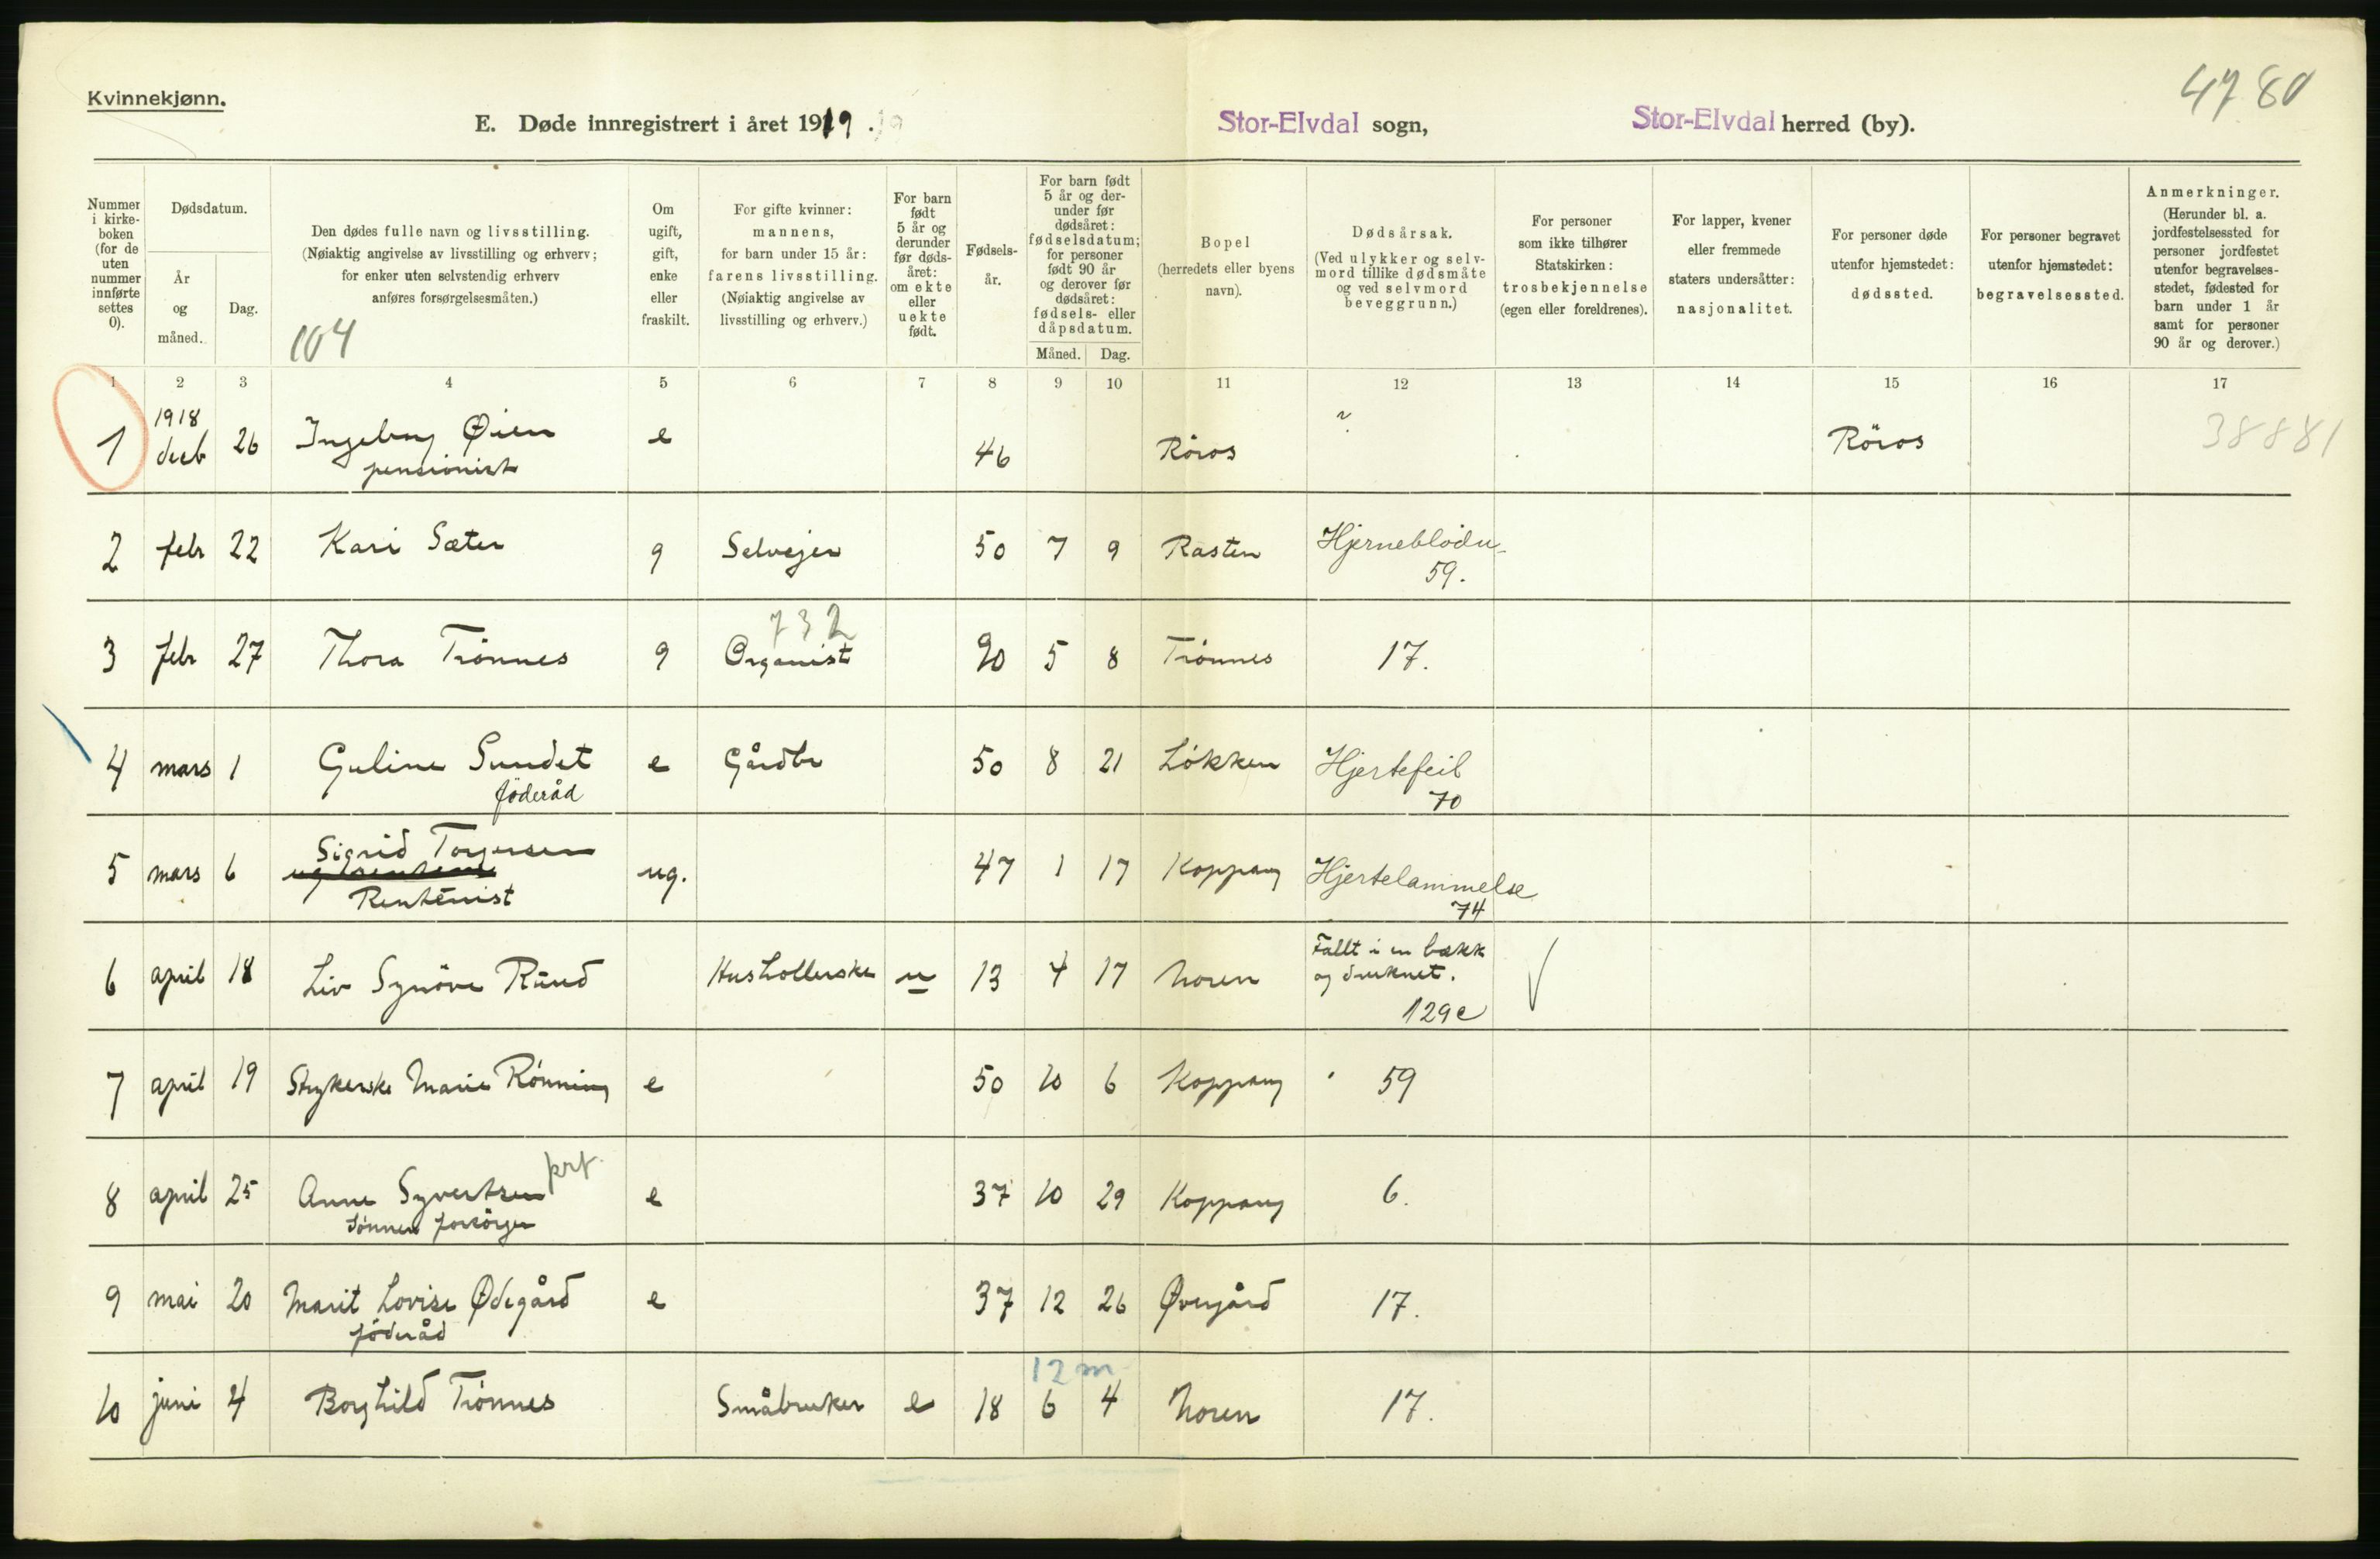 Kvinnekjønn.
E. Døde innregistrert i året 1919.
Stor-Elvdal sogn,
Stor-Elvdal herred (by).
4780
Nummer i kirkeboken (for de uten nummer innførte settes 0).
Dødsdatum.
År og måned.
Dag.
Den dødes fulle navn og livsstilling.
(Nøiaktig angivelse av livsstilling og erhverv;
for enker uten selvstendig erhverv
anføres forsørgelsesmåten.)
104
Om ugift, gift, enke eller fraskilt.
For gifte kvinner:
mannens,
for barn under 15 år:
farens livsstilling.
(Nøiaktig angivelse av
livsstilling og erhverv.)
For barn født 5 år og derunder før dødsåret: om ekte eller uekte født.
Fødselsår.
For barn født 5 år og derunder før dødsåret: fødselsdatum; for personer født 90 år og derover før dødsåret: fødsels- eller dåpsdatum.
Måned. Dag.
Bopel
(herredets eller byens
navn).
Dødsårsak.
(Ved ulykker og selvmord tillike dødsmåte og ved selvmord beveggrunn.)
For personer
som ikke tilhører
Statskirken:
trosbekjennelse
(egen eller foreldrenes).
For lapper, kvener
eller fremmede
staters undersåtter:
nasjonalitet.
For personer døde
utenfor hjemstedet:
dødssted.
For personer begravet
utenfor hjemstedet:
begravelsessted.
Anmerkninger.
(Herunder bl. a.
jordfestelsessted for
personer jordfestet
utenfor begravelses-
stedet, fødested for
barn under 1 år
samt for personer
90 år og derover.)
1 2 3 4 5 6 7 8 9 10 11 12 13 14 15 16 17
1918
1 desb 26 Ingeborg Øien e 46 Röros ? Röros 38881
pensionist
2 febr 22 Kari Sæter g Selvejer 50 7 9 Rasten Hjerneblødn.
59.
732
3 febr 27 Thora Trønnes g Organist 90 5 8 Trønnes 17.
4 mars 1 Guline Sundet e Gårdbr 50 8 21 Løkken Hjertefeil
föderåd 70
5 mars 6 Sigrid Torgersen ug. 47 1 17 Koppang Hjertelammelse
Rentenist 74
6 april 18 Liv Synöve Rūud Husholderske u 13 4 17 Noren Fallt i en bækk
og druknet.
129c
7 april 19 Strykerske Marie Rønning e 50 10 6 Koppang 59
8 april 25 Anne Syvertsen prf. e 37 10 29 Koppang 6.
sønnen forsörger
9 mai 20 Marit Lovise Ødegård e 37 12 26 Øvergård 17.
föderåd
12 m
10 juni 4 Borghild Trønnes Småbruker e 18 6 4 Noren 17.